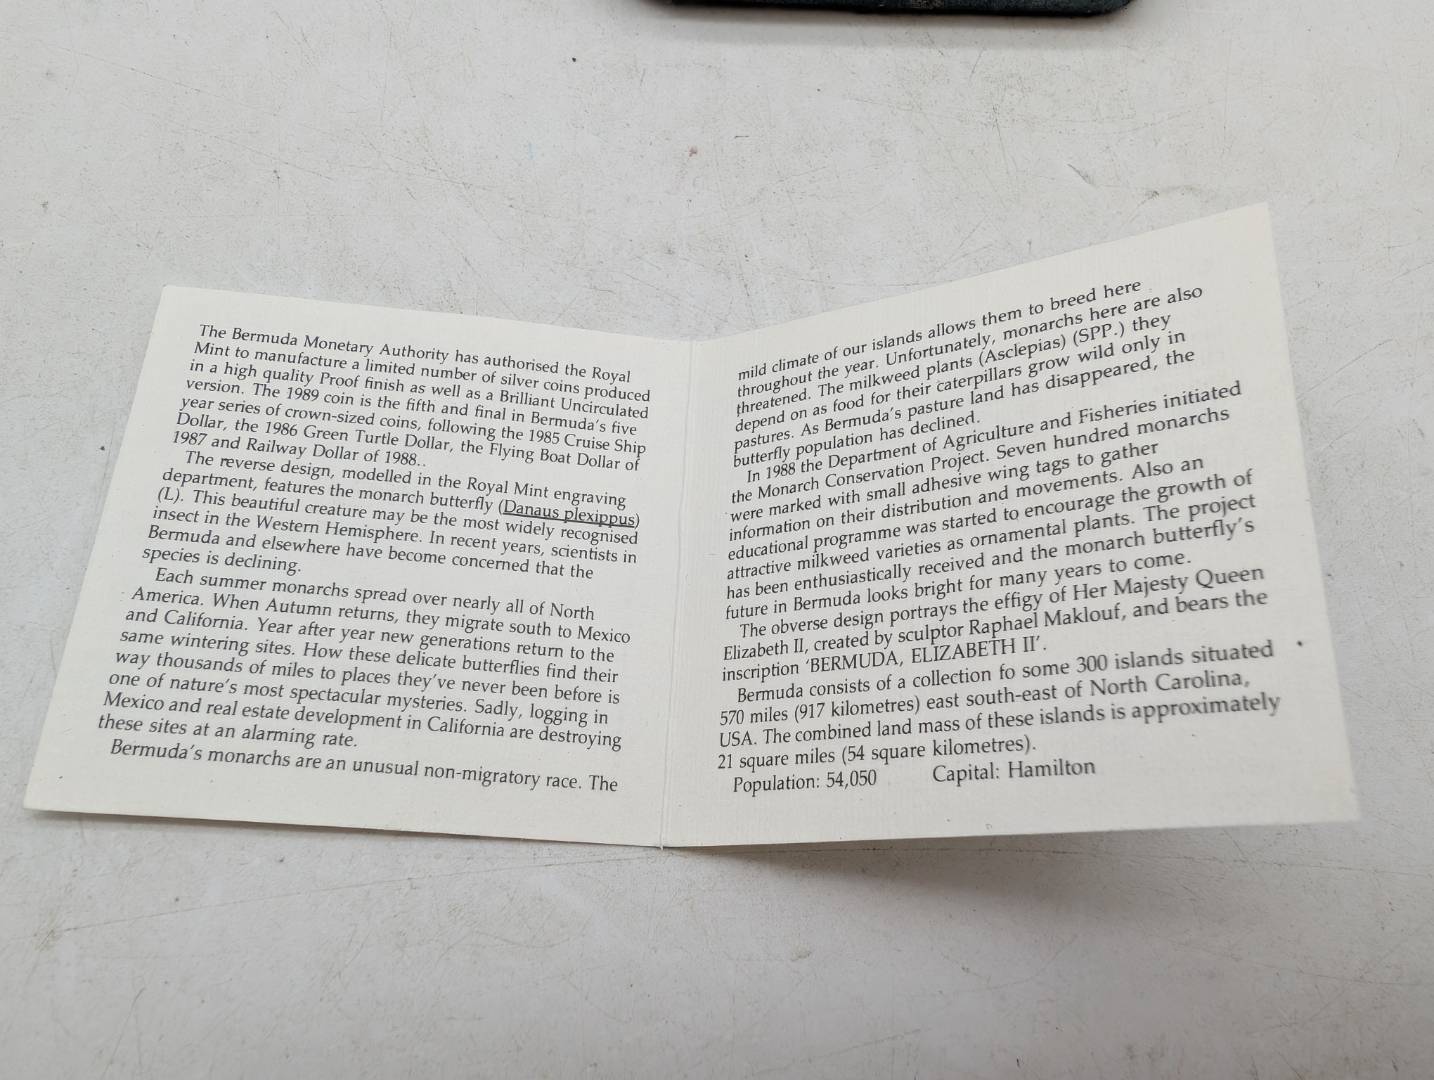 The Bermuda Monetary Authority has authorised the Royal
Mint to manufacture a limited number of silver coins produced
in a high quality Proof finish as well as a Brilliant Uncirculated
version. The 1989 coin is the fifth and final in Bermuda's five
year series of crown-sized coins, following the 1985 Cruise Ship
Dollar, the 1986 Green Turtle Dollar, the Flying Boat Dollar of
1987 and Railway Dollar of 1988..
The reverse design, modelled in the Royal Mint engraving
department, features the monarch butterfly (Danaus plexippus)
(L). This beautiful creature may be the most widely recognised
insect in the Western Hemisphere. In recent years, scientists in
Bermuda and elsewhere have become concerned that the
species is declining.
Each summer monarchs spread over nearly all of North
America. When Autumn returns, they migrate south to Mexico
and California. Year after year new generations return to the
same wintering sites. How these delicate butterflies find their
way thousands of miles to places they've never been before is
one of nature's most spectacular mysteries. Sadly, logging in
Mexico and real estate development in California are destroying
these sites at an alarming rate.
Bermuda's monarchs are an unusual non-migratory race. The
mild climate of our islands allows them to breed here
throughout the year. Unfortunately, monarchs here are also
threatened. The milkweed plants (Asclepias) (SPP.) they
depend on as food for their caterpillars grow wild only in
pastures. As Bermuda's pasture land has disappeared, the
butterfly population has declined.
In 1988 the Department of Agriculture and Fisheries initiated
the Monarch Conservation Project. Seven hundred monarchs
were marked with small adhesive wing tags to gather
information on their distribution and movements. Also an
educational programme was started to encourage the growth of
attractive milkweed varieties as ornamental plants. The project
has been enthusiastically received and the monarch butterfly's
future in Bermuda looks bright for many years to come.
The obverse design portrays the effigy of Her Majesty Queen
Elizabeth II, created by sculptor Raphael Maklouf, and bears the
inscription 'BERMUDA, ELIZABETH II'.
Bermuda consists of a collection fo some 300 islands situated
570 miles (917 kilometres) east south-east of North Carolina,
USA. The combined land mass of these islands is approximately
21 square miles (54 square kilometres).
Population: 54,050 Capital: Hamilton